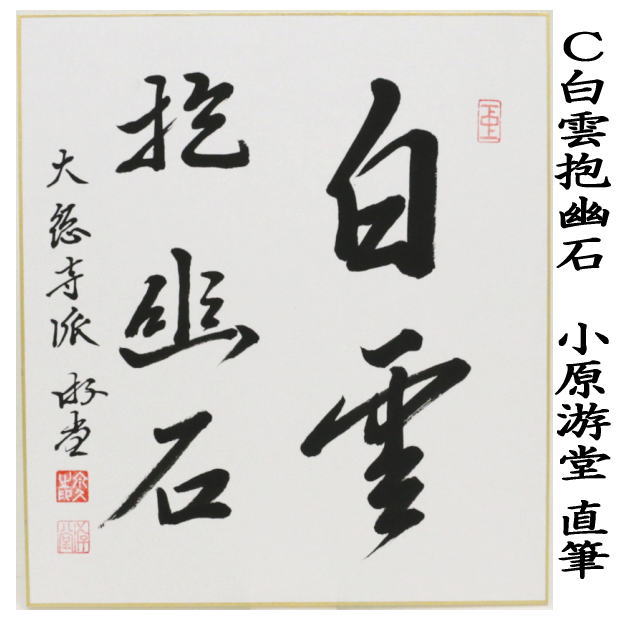 C白雲抱幽石 小原游堂 直筆
白雲
抱幽石
大徳寺派 游堂